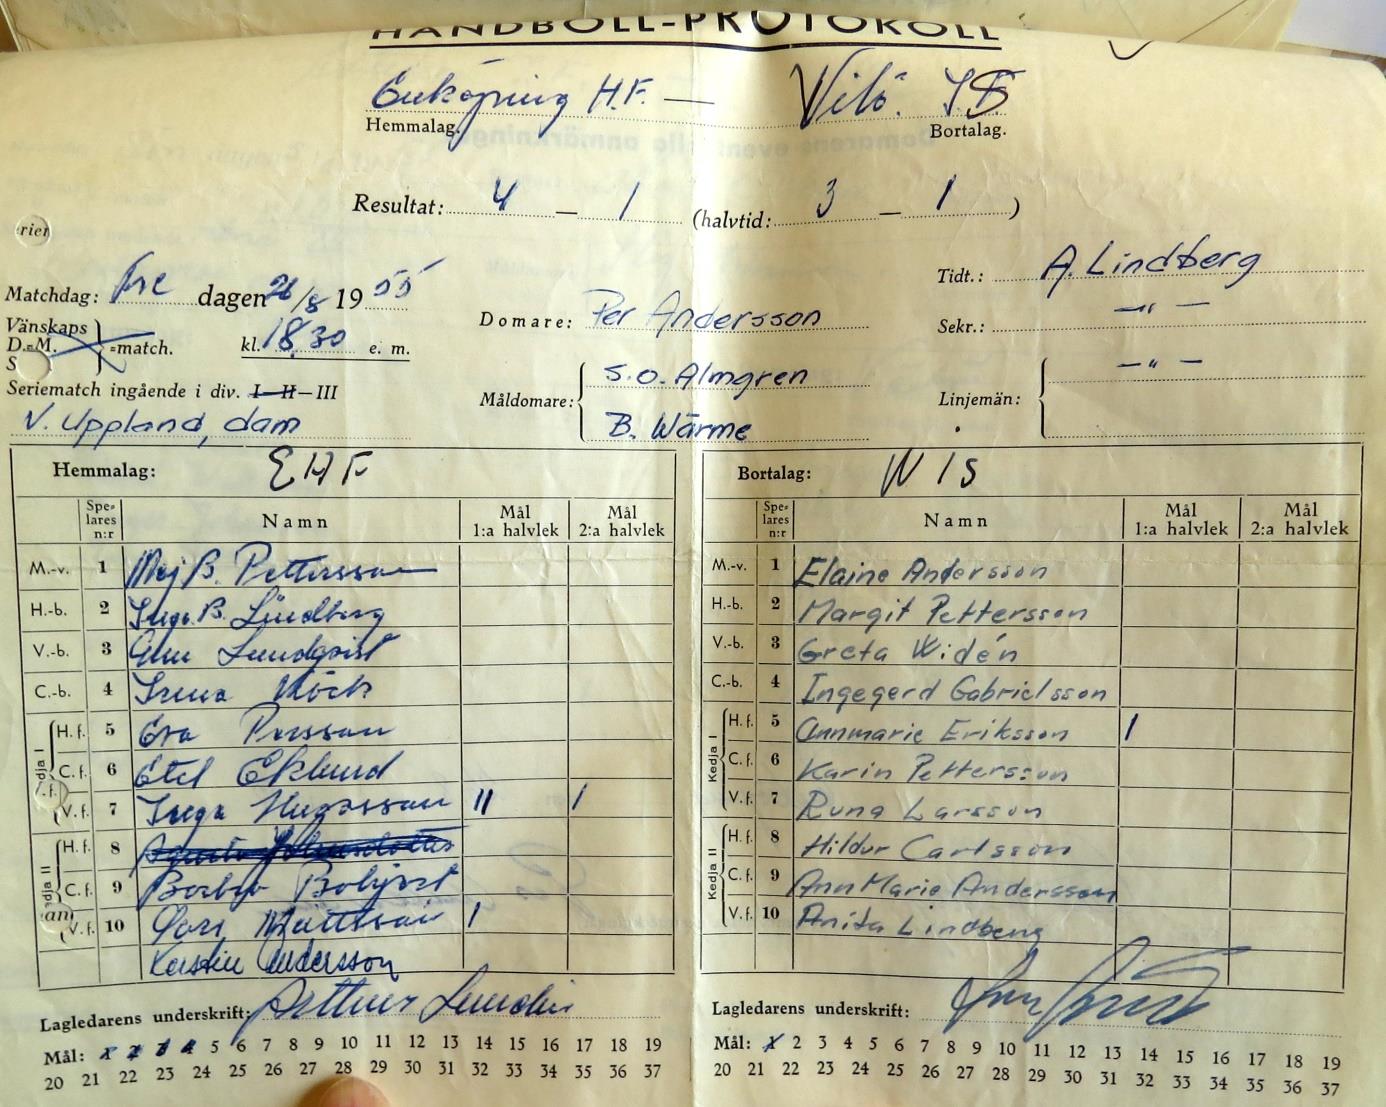 HANDBOLL-PROTOKOLL
Enköping H.F. — Vilö. IS
Hemmalag. Bortalag.
Resultat: 4 — 1 (halvtid: 3 — 1 )
rier
Tidt.: A. Lindberg
Matchdag: Fre dagen 26/8 19 55
Domare: Per Andersson
Sekr.: —"—
Vänskaps
D.-M. =match. kl. 18.30 e. m.
S
Måldomare: S.O. Almgren
B. Wärme
Linjemän: —"—
Seriematch ingående i div. I—II—III
V. Uppland, dam
Hemmalag: EHF
Bortalag: WIS
Spelares n:r Namn Mål 1:a halvlek Mål 2:a halvlek
M.-v. 1 Maj B. Pettersson
H.-b. 2 Inga B. Lindberg
V.-b. 3 Lundqvist
C.-b. 4 Irma
H. f. 5 Eva Persson
C. f. 6 Etel Eklund
V. f. 7 Inga Hugosson II I
H. f. 8
C. f. 9
V. f. 10 Mattsson I
Kerstin Andersson
Kedja II
an
Lagledarens underskrift: Arthur Lundin
Mål: 1 2 3 4 5 6 7 8 9 10 11 12 13 14 15 16 17 18 19
20 21 22 23 24 25 26 27 28 29 30 31 32 33 34 35 36 37
Spelares n:r Namn Mål 1:a halvlek Mål 2:a halvlek
M.-v. 1 Elaine Andersson
H.-b. 2 Margit Pettersson
V.-b. 3 Greta Widén
C.-b. 4 Ingegerd Gabrielsson
Kedja I
H. f. 5 Annmarie Eriksson I
C. f. 6 Karin Pettersson
V. f. 7 Runa Larsson
Kedja II
H. f. 8 Hildur Carlsson
C. f. 9 AnnMarie Andersson
V. f. 10 Anita Lindberg
Lagledarens underskrift:
Mål: 1 2 3 4 5 6 7 8 9 10 11 12 13 14 15 16 17 18 19
20 21 22 23 24 25 26 27 28 29 30 31 32 33 34 35 36 37